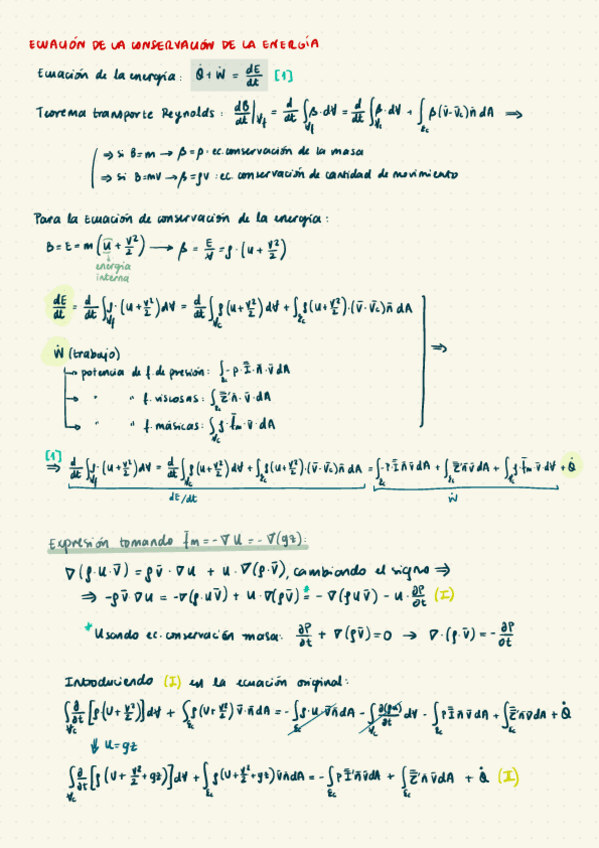 ECUACIÓN DE LA CONSERVACIÓN DE LA ENERGÍA
Ecuación de la energía: Q̇ + Ẇ = dE/dt [1]
Teorema transporte Reynolds: dB/dt|_Vf = d/dt ∫_Vf β·dV = d/dt ∫_Vc β·dV + ∫_Σc β(v̄-v̄c)n̄ dA ⇒
⇒ si B=m → β=ρ: ec. conservación de la masa
⇒ si B=mv → β=ρv: ec. conservación de cantidad de movimiento
Para la Ecuación de conservación de la energía:
B = E = m(u + v²/2) → β = E/V = ρ·(u + v²/2)
energía
interna
dE/dt = d/dt ∫_Vf ρ·(u+v²/2)dV = d/dt ∫_Vc ρ(u+v²/2)dV + ∫_Σc ρ(u+v²/2)·(v̄-v̄c)n̄ dA
Ẇ (trabajo) ⇒
potencia de f. de presión: ∫_Σc -p·I̿·n̄·v̄ dA
" " f. viscosas: ∫_Σc τ̿'n̄·v̄ dA
" " f. másicas: ∫_Vc ρ·f̄m·v̄·dA
[1]
⇒ d/dt ∫_Vf ρ·(u+v²/2)dV = d/dt ∫_Vc ρ(u+v²/2)dV + ∫_Σc ρ(u+v²/2)·(v̄-v̄c)n̄ dA = ∫_Σc -pI̿n̄v̄dA + ∫_Σc τ̿'n̄v̄dA + ∫_Vc ρ·f̄m v̄ dV + Q̇
dE/dt Ẇ
Expresión tomando f̄m = -∇U = -∇(gz):
∇(ρ·U·v̄) = ρv̄·∇U + U·∇(ρ·v̄), cambiando el signo ⇒
⇒ -ρv̄∇U = -∇(ρ·Uv̄) + U·∇(ρv̄) =* -∇(ρUv̄) - U·∂ρ/∂t (I)
* Usando ec. conservación masa: ∂ρ/∂t + ∇(ρv̄) = 0 → ∇·(ρ·v̄) = -∂ρ/∂t
Introduciendo (I) en la ecuación original:
∫_Vc ∂/∂t[ρ(u+v²/2)]dV + ∫_Σc ρ(u+v²/2)v̄·n̄dA = -∫_Σc ρ·U·v̄n̄dA - ∫_Vc ∂(ρU)/∂t dV - ∫_Σc pI̿n̄v̄dA + ∫_Σc τ̿'n̄v̄dA + Q̇
⇓ U=gz
∫_Vc ∂/∂t[ρ(u+v²/2+gz)]dV + ∫_Σc ρ(u+v²/2+gz)v̄n̄dA = -∫_Σc pI̿'n̄v̄dA + ∫_Σc τ̿'n̄v̄dA + Q̇ (I)